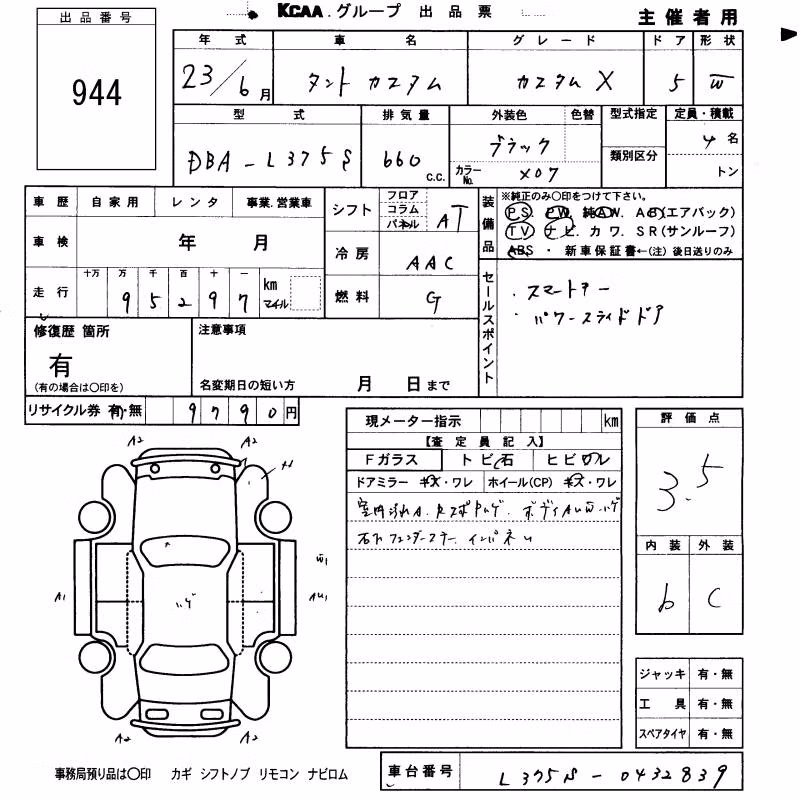 KCAA.グループ 出品票
主催者用
出品番号
944
年式 車名 グレード ドア 形状
23/6月 タントカスタム カスタムX 5 W
型式 排気量 外装色 色替 型式指定 定員・積載
DBA-L375S 660 c.c. ブラック 類別区分 4名
カラーNo. X07 トン
車歴 自家用 レンタ 事業.営業車
シフト フロア コラム パネル AT
装備品 ※純正のみ○印をつけて下さい。
PS. PW. 純AW. AB(エアバック)
TV ナビ. カワ. SR(サンルーフ)
ABS ・ 新車保証書←(注) 後日送りのみ
車検 年 月
冷房 AAC
走行 十万 万 千 百 十 一
95297 km マイル
燃料 G
セールスポイント
・スマートキー
・パワースライドドア
修復歴 箇所
有
(有の場合は○印を)
注意事項
名変期日の短い方 月 日まで
リサイクル券 有・無 9790円
現メーター指示 km
【査定員記入】
Fガラス トビ石 ヒビワレ
ドアミラー キズ・ワレ ホイール(CP) キズ・ワレ
評価点
3.5
内装 外装
b C
A2 A2
A1
W1
AU1
ハゲ
A2 A2
ジャッキ 有・無
工具 有・無
スペアタイヤ 有・無
事務局預り品は○印 カギ シフトノブ リモコン ナビロム
車台番号 L375S-0432839